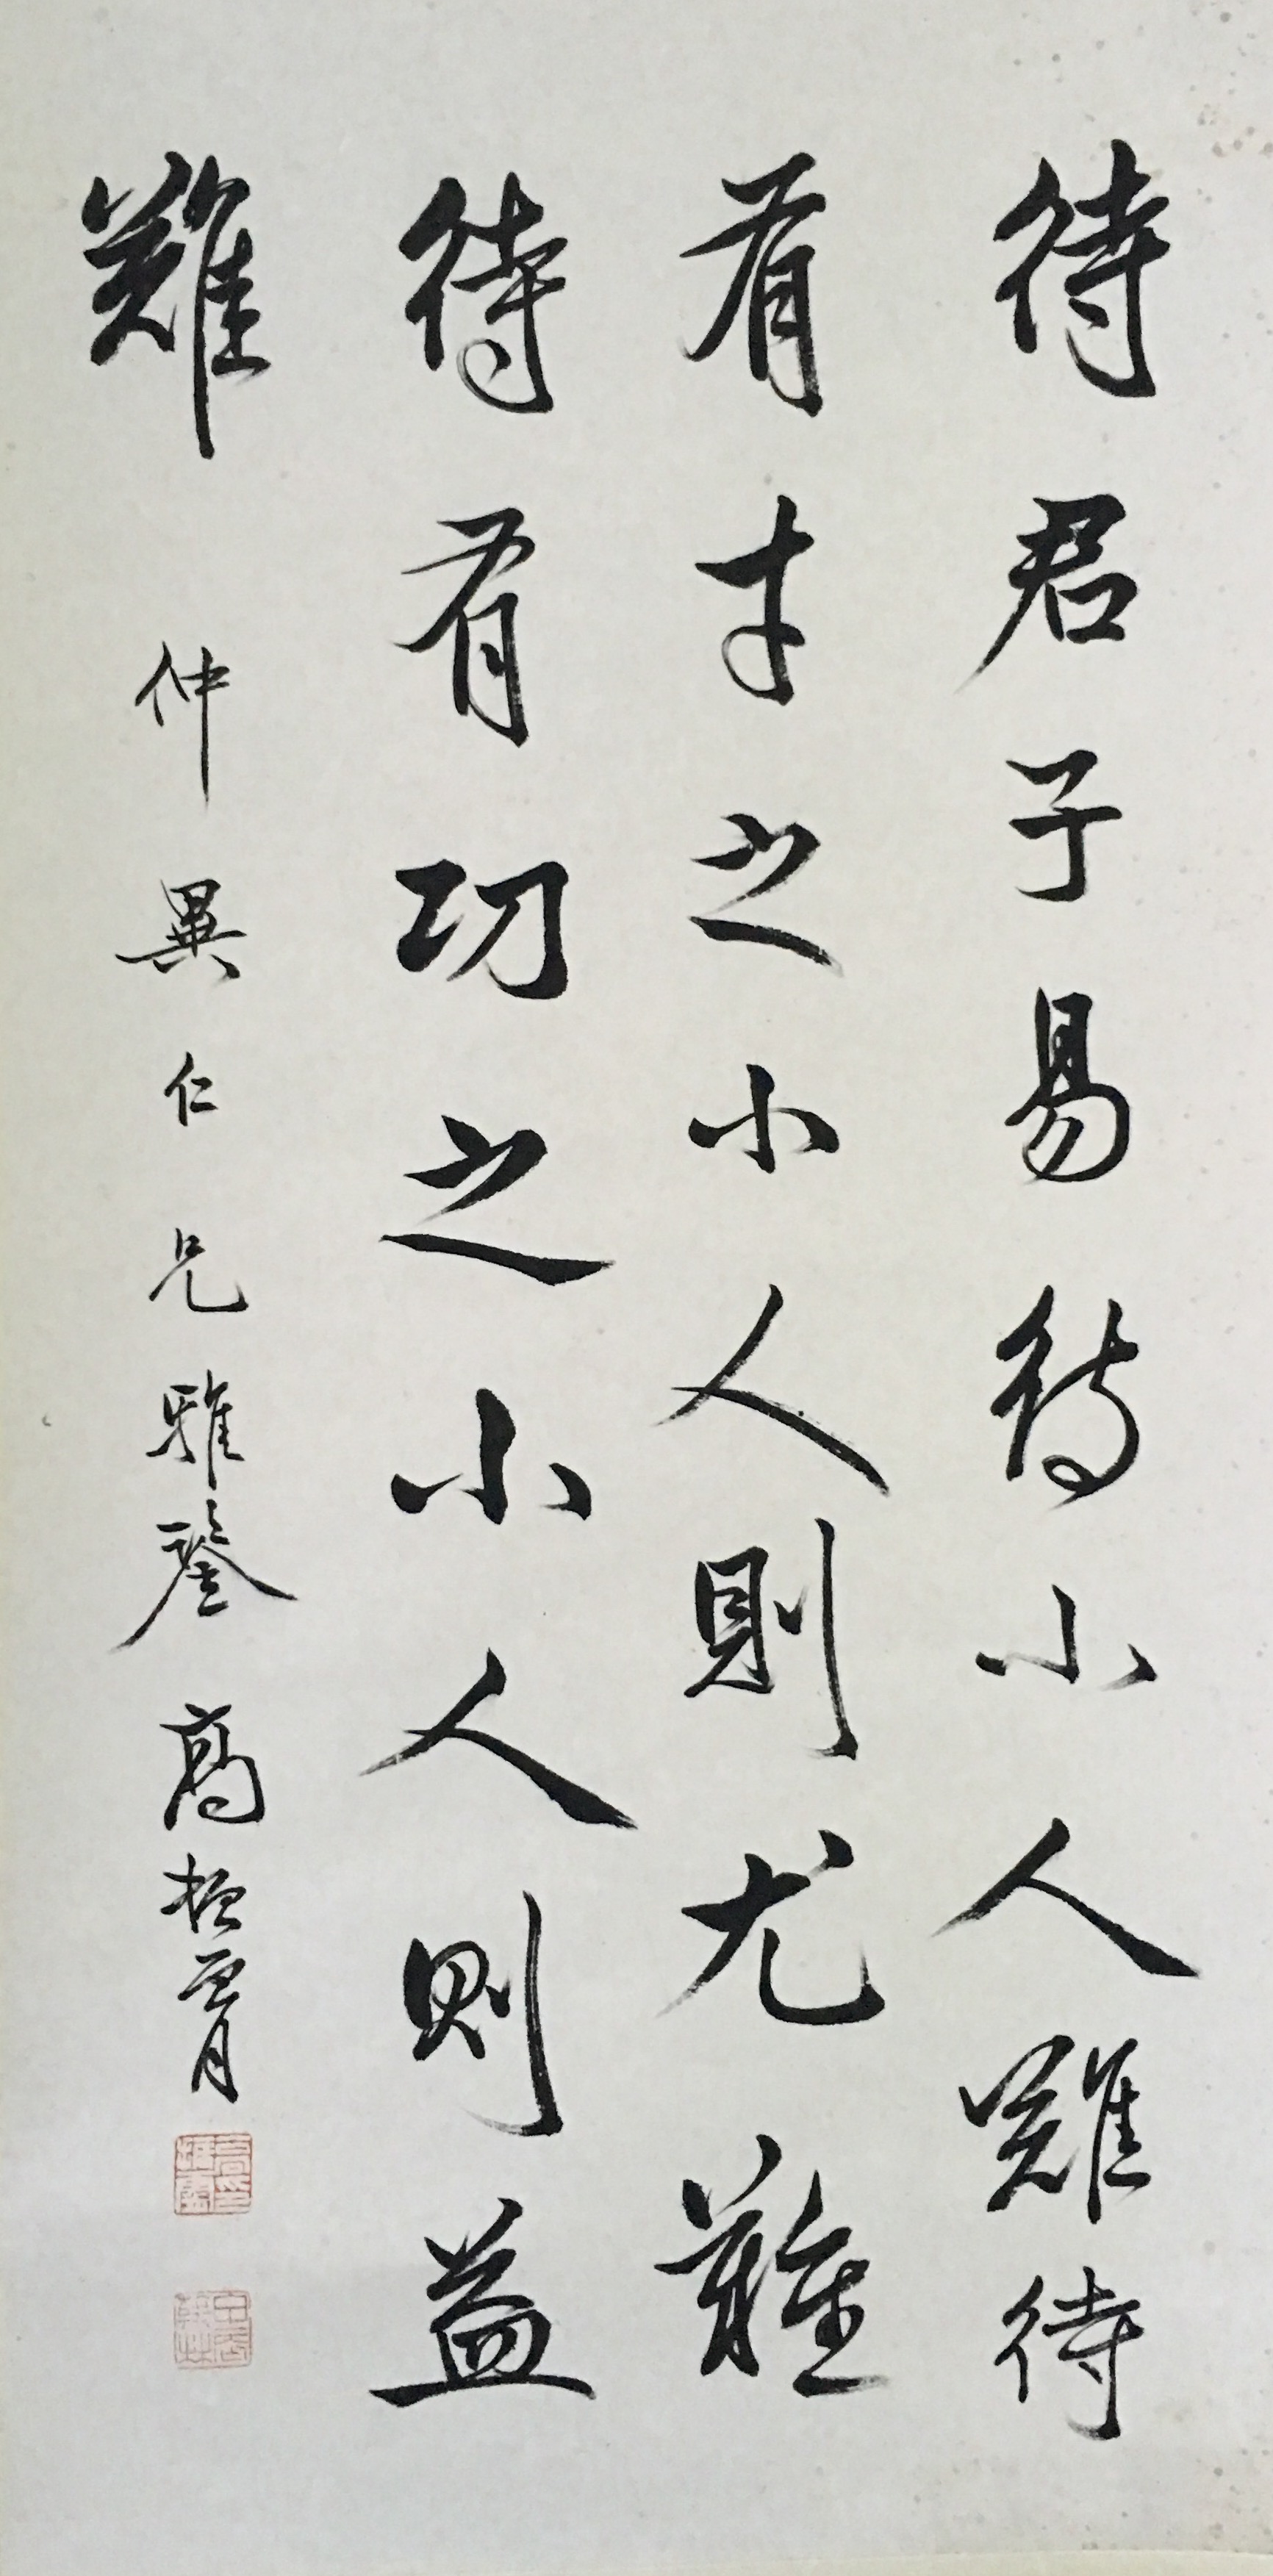 待君子易待小人難待
有才之小人則尤難
待有功之小人則益
難
仲異仁兄雅鑒
高振霄
高印
振霄